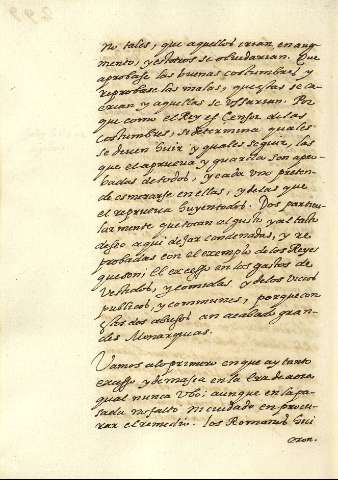 no tales, que aquellos irian en aug
mento, y estotros se olvidarian. Que
aprobase las buenas costumbres y
reprobase las malas, que estas se ca
erian y aquellas se usarian. Por
que como el Rey es Censor de las
costumbres, se determina quales
se deven huir y quales seguir, las
que el aprueva y guarda son apro
badas de todos, y cada uno preten
de esmerarse en ellas, y de las que
el reprueva huyen todos. Dos particu
larmente que tocan al gusto y al
deseo aqui dejar condenadas, y re
probadas con el exemplo de los Reyes
que son, el excesso en los gastos de
vestidos, y comidas y de los vicios
publicos, y communes, porque con
estos dos abusos an acabado gran
des Monarquias.
Vamos a lo primero en que ay tanto
excesso y demasia en la Era de aora
qual nunca ubo: aunque en la pa
sada no falto ni cuidado en procu
rar el remedio. los Romanos hici
eron.